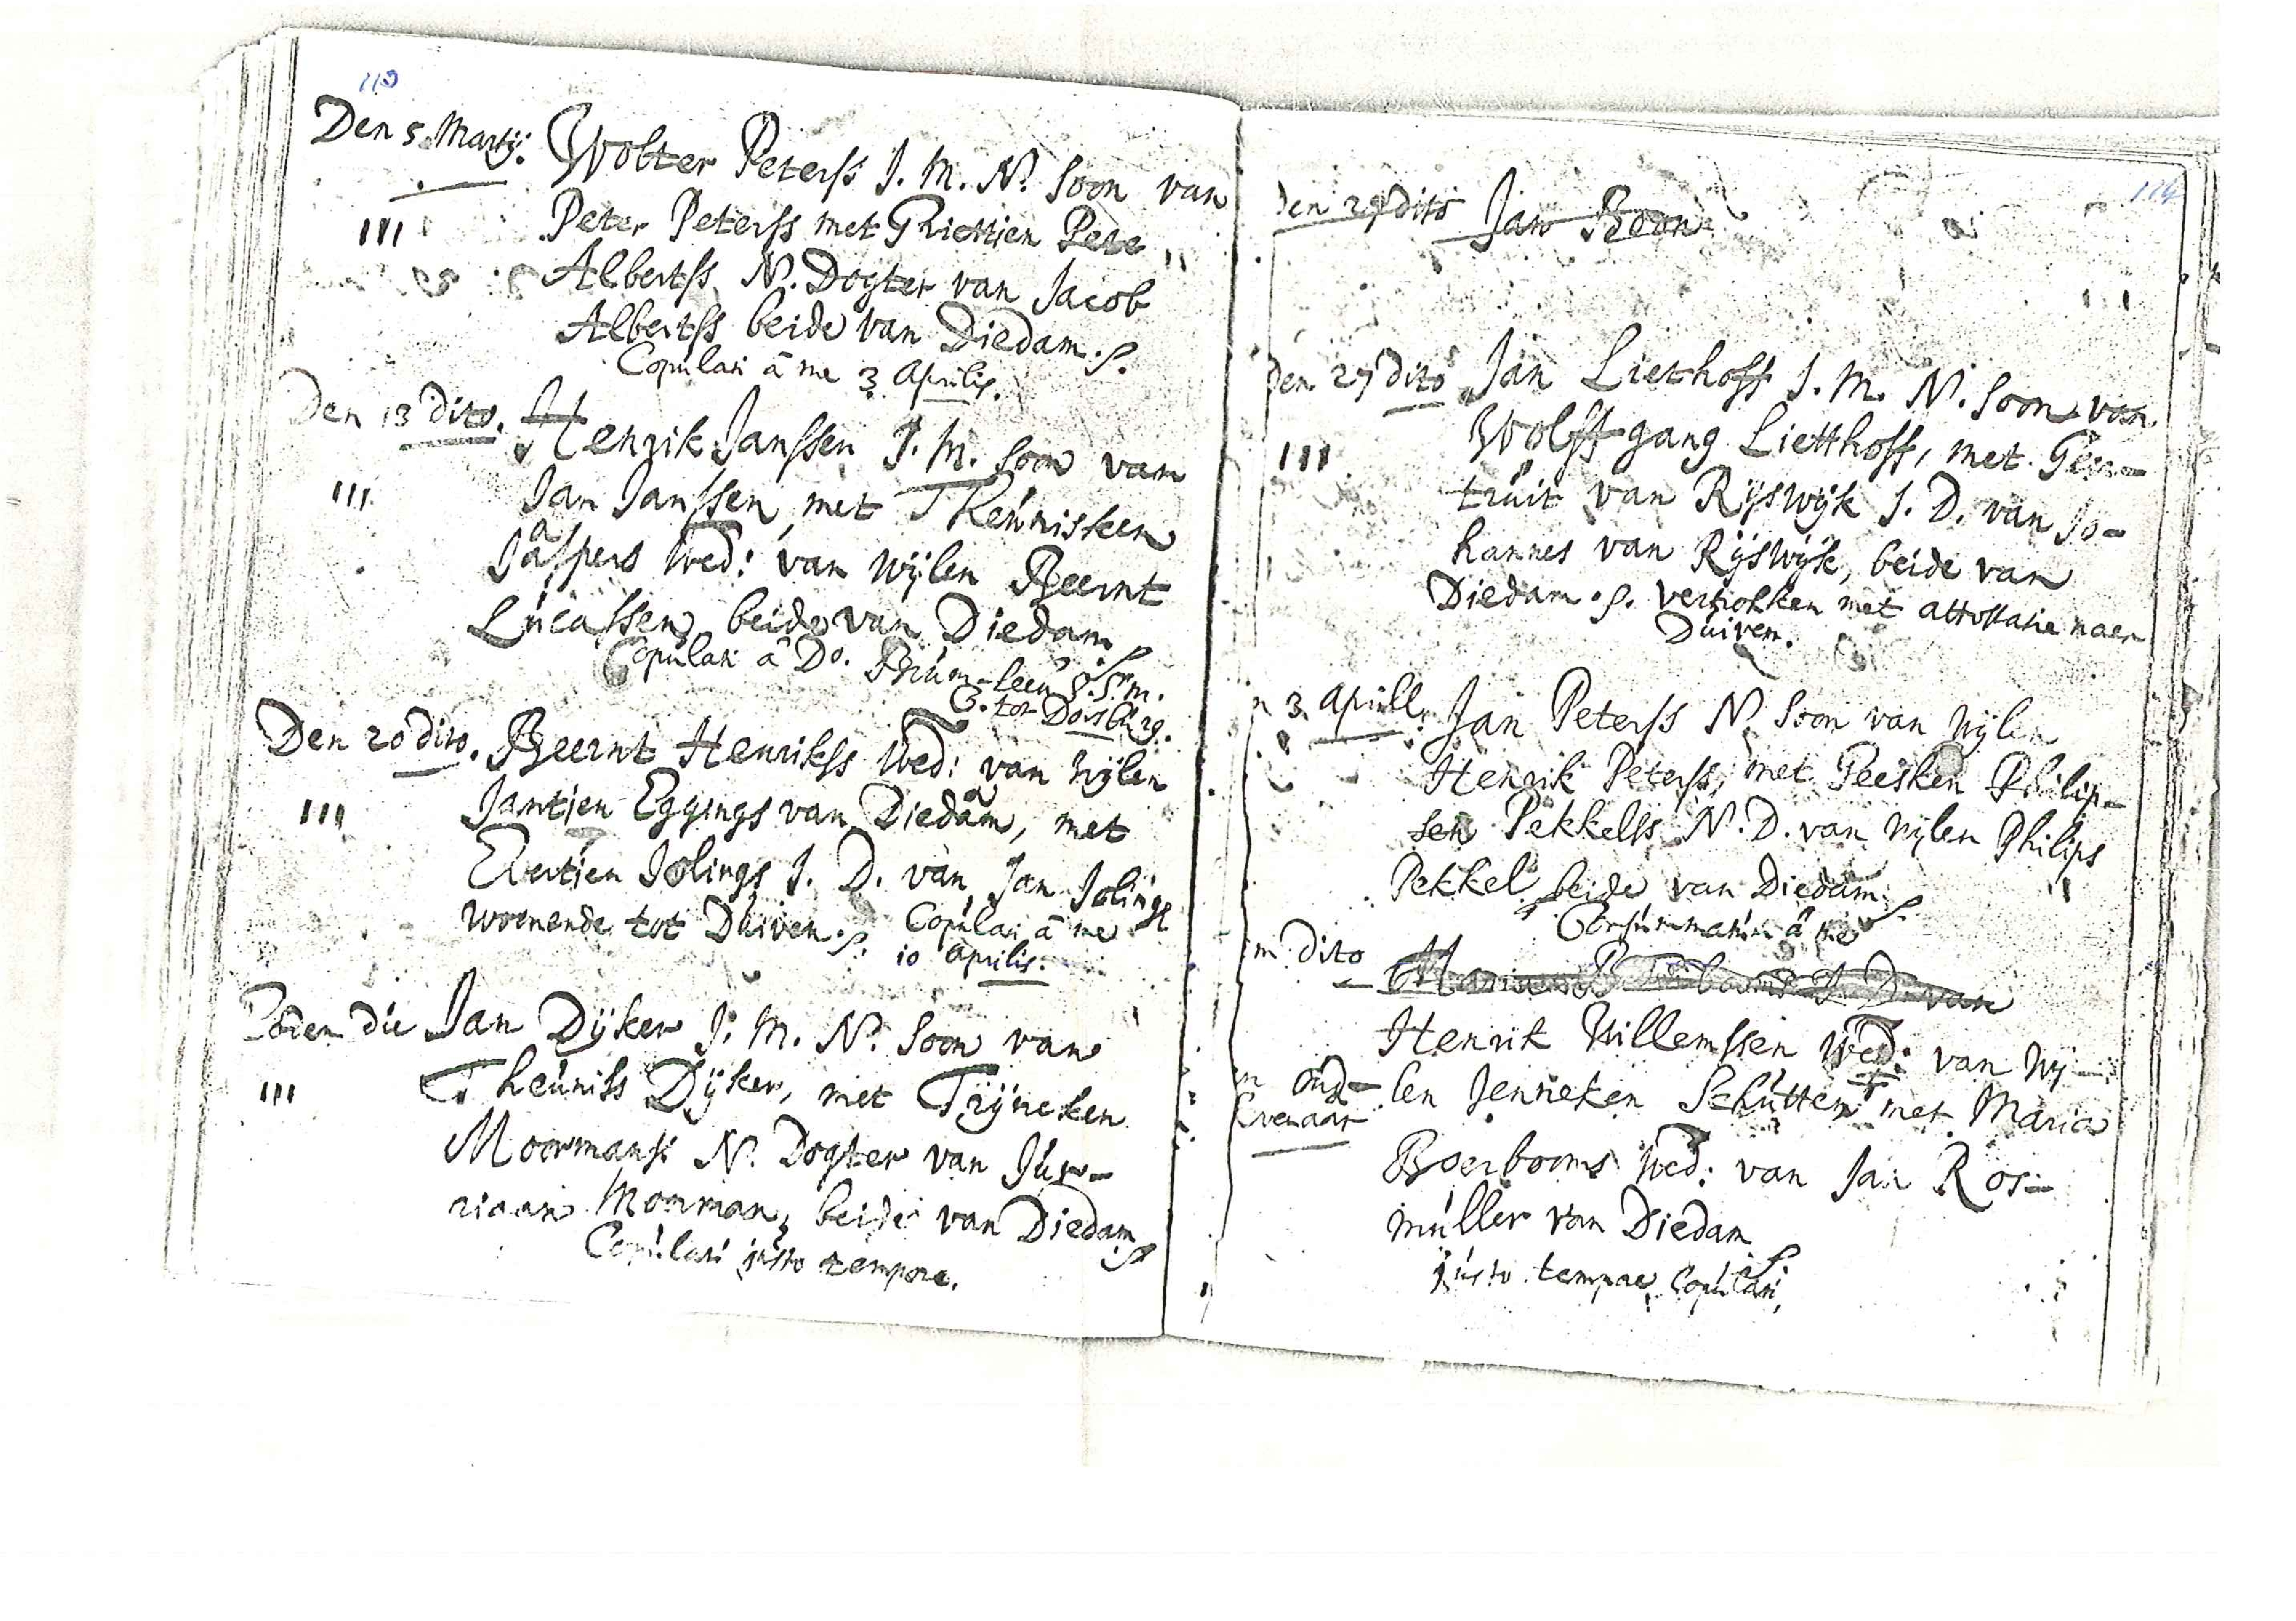 113
Den 5. Martij. Wolter Peterss J. M. N. Soon van
III Peter Peterss met Griettien Pete
Albertss N. Dogter van Jacob
Albertss beide van Diedam. S.
Copulati â me 3 Aprilis.
Den 13 dito. Henrik Janssen J. M. Soon van
III Jan Janssen, met Theunisken
Jaspers Wed: van wijlen Beernt
Lucassen, beide van Diedam
Copulati â Do.
tot Dosburg.
Den 20 dito. Beernt Henrikss Wed: van wijlen
III Jantjen Eggings van Diedam, met
Evertjen Jolings J. D. van Jan Jolings
woenende tot Duiven. S. Copulati â me
10 Aprilis.
Eoden die Jan Dijker J. M. N. Soon van
III Theuniss Dijker, met Trijneken
Moormans N. Dogter van Jur-
riaan Moorman, beide van Diedam
S.
Copulati justo tempore.
114
Den dito Jan Boon
Den 27 dito Jan Liethoff J. M. N. Soon van
III Wolffgang Lietthoff, met Geer-
truit van Rijswijk J. D. van Jo-
hannes van Rijswijk, beide van
Diedam. S. vertrokken met attestatie naer
Duiven.
3. Aprill. Jan Peterss N. Soon van wijlen
Henrik Peterss, met Peesken Philip-
sen Pekkelss N. D. van wijlen Philips
Pekkel beide van Diedam. S.
â me
dito J. D. van
Henrik Willemssen Wed: van wij-
oud- len Jenneken Schutten met Maria
Boerbooms Wed: van Jan Ros-
muller van Diedam
S.
justo tempore Copulati,